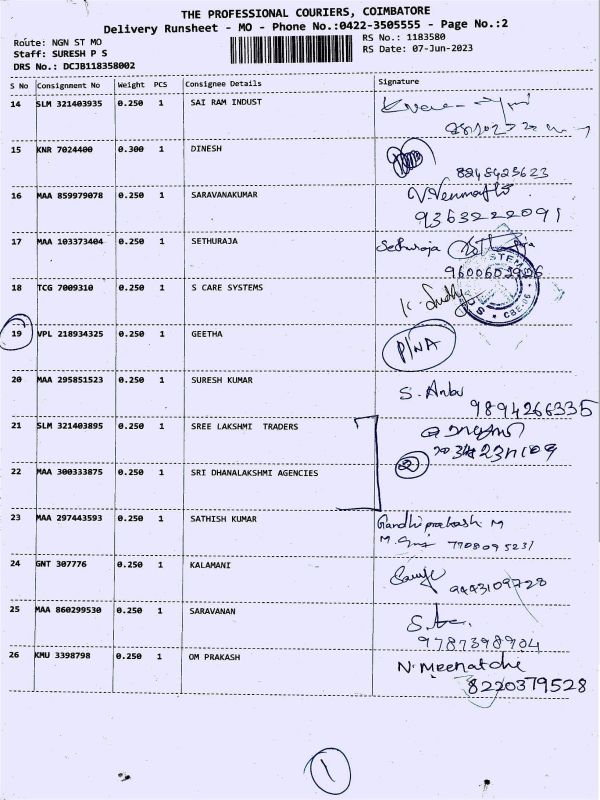 THE PROFESSIONAL COURIERS, COIMBATORE
Delivery Runsheet - MO - Phone No.:0422-3505555 - Page No.:2
Route: NGN ST MO
Staff: SURESH P S
DRS No.: DCJB118358002
RS No.: 1183580
RS Date: 07-Jun-2023
S No Consignment No Weight PCS Consignee Details Signature
14 SLM 321403935 0.250 1 SAI RAM INDUST
15 KNR 7024400 0.300 1 DINESH
8248423623
16 MAA 859979078 0.250 1 SARAVANAKUMAR
9363222091
17 MAA 103373404 0.250 1 SETHURAJA Sethuraja
18 TCG 7009310 0.250 1 S CARE SYSTEMS
CBE-06
19 VPL 218934325 0.250 1 GEETHA P/NA
20 MAA 295851523 0.250 1 SURESH KUMAR S. Anbu
9894266335
21 SLM 321403895 0.250 1 SREE LAKSHMI TRADERS
22 MAA 300333875 0.250 1 SRI DHANALAKSHMI AGENCIES 2
23 MAA 297443593 0.250 1 SATHISH KUMAR Gandhiprakash M
7708095231
24 GNT 307776 0.250 1 KALAMANI
9443109728
25 MAA 860299530 0.250 1 SARAVANAN
9787398904
26 KMU 3398798 0.250 1 OM PRAKASH N. Meenatchi
8220379528
1